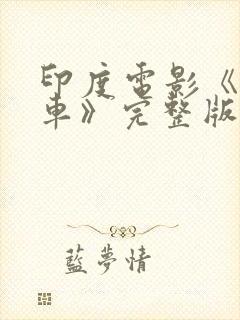 印度電影《
車》完整版
藍夢情